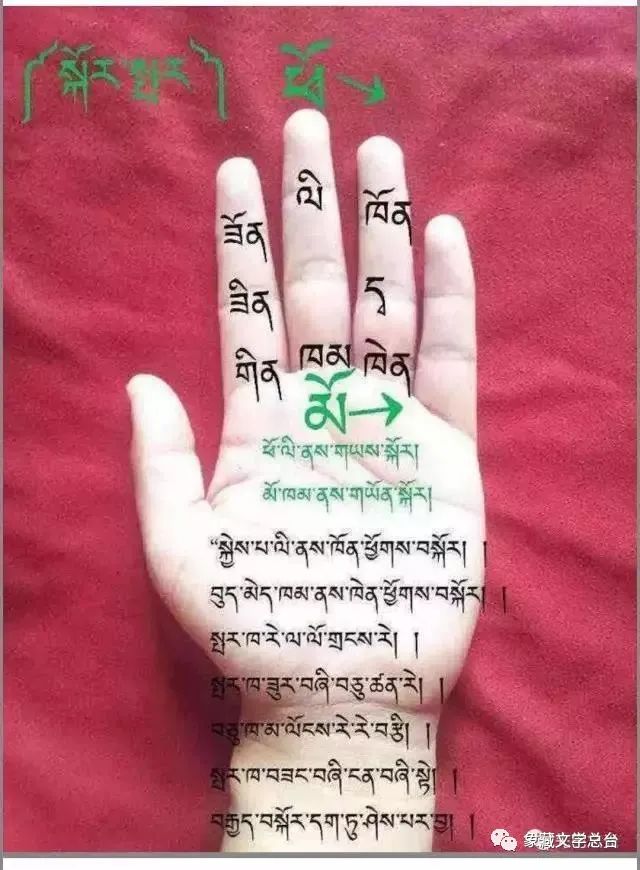 ༼སྐོར་སྤར༽ ཕོ→
ལི
ཟོན ཁོན
ཟིན དྭ
གིན ཁམ ཁེན
མོ→
ཕོ་ལི་ནས་གཡས་སྐོར།
མོ་ཁམ་ནས་གཡོན་སྐོར།
“སྐྱེས་པ་ལི་ནས་ཁོན་ཕྱོགས་བསྐོར། །
བུད་མེད་ཁམ་ནས་ཁེན་ཕྱོགས་བསྐོར། །
སྤར་ཁ་རེ་ལ་ལོ་གྲངས་རེ། །
སྤར་ཁ་ཟུར་བཞི་བཅུ་ཚན་རེ། །
བཅུ་ཁ་མ་ལོངས་རེ་རེ་བརྩི། །
སྤར་ཁ་བཟང་བཞི་ངན་བཞི་སྟེ། །
བརྒྱད་བསྐོར་དག་ཏུ་ཤེས་པར་བྱ། །
象藏文学总台